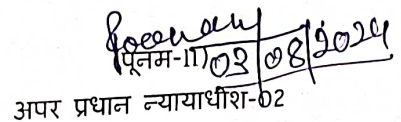 Poonam
(पूनम-II) 03/08/2024
अपर प्रधान न्यायाधीश-02